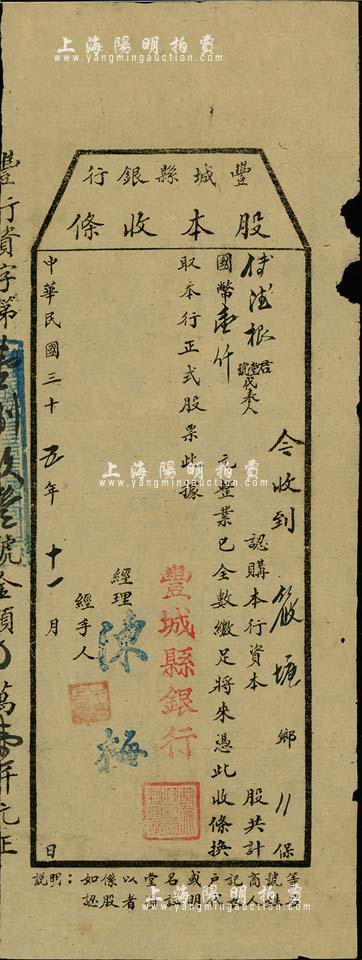 上海陽明拍賣
www.yangmingauction.com
豐城縣銀行
股本收條
今收到 筱塘 鄉 11 保
付渡根 君堂號代表人 認購本行資本 股共計
國幣壹仟 元整業已全數繳足將來憑此收條換
取本行正式股票此據
豐城縣銀行
經理
經手人
陳
中華民國三十五年十一月 日
上海陽明拍賣
www.yangmingauction.com
豐行資字第 號金額 萬 仟元正
說明：如係以堂名或戶記商號等
上海陽明拍賣
www.yangmingauction.com